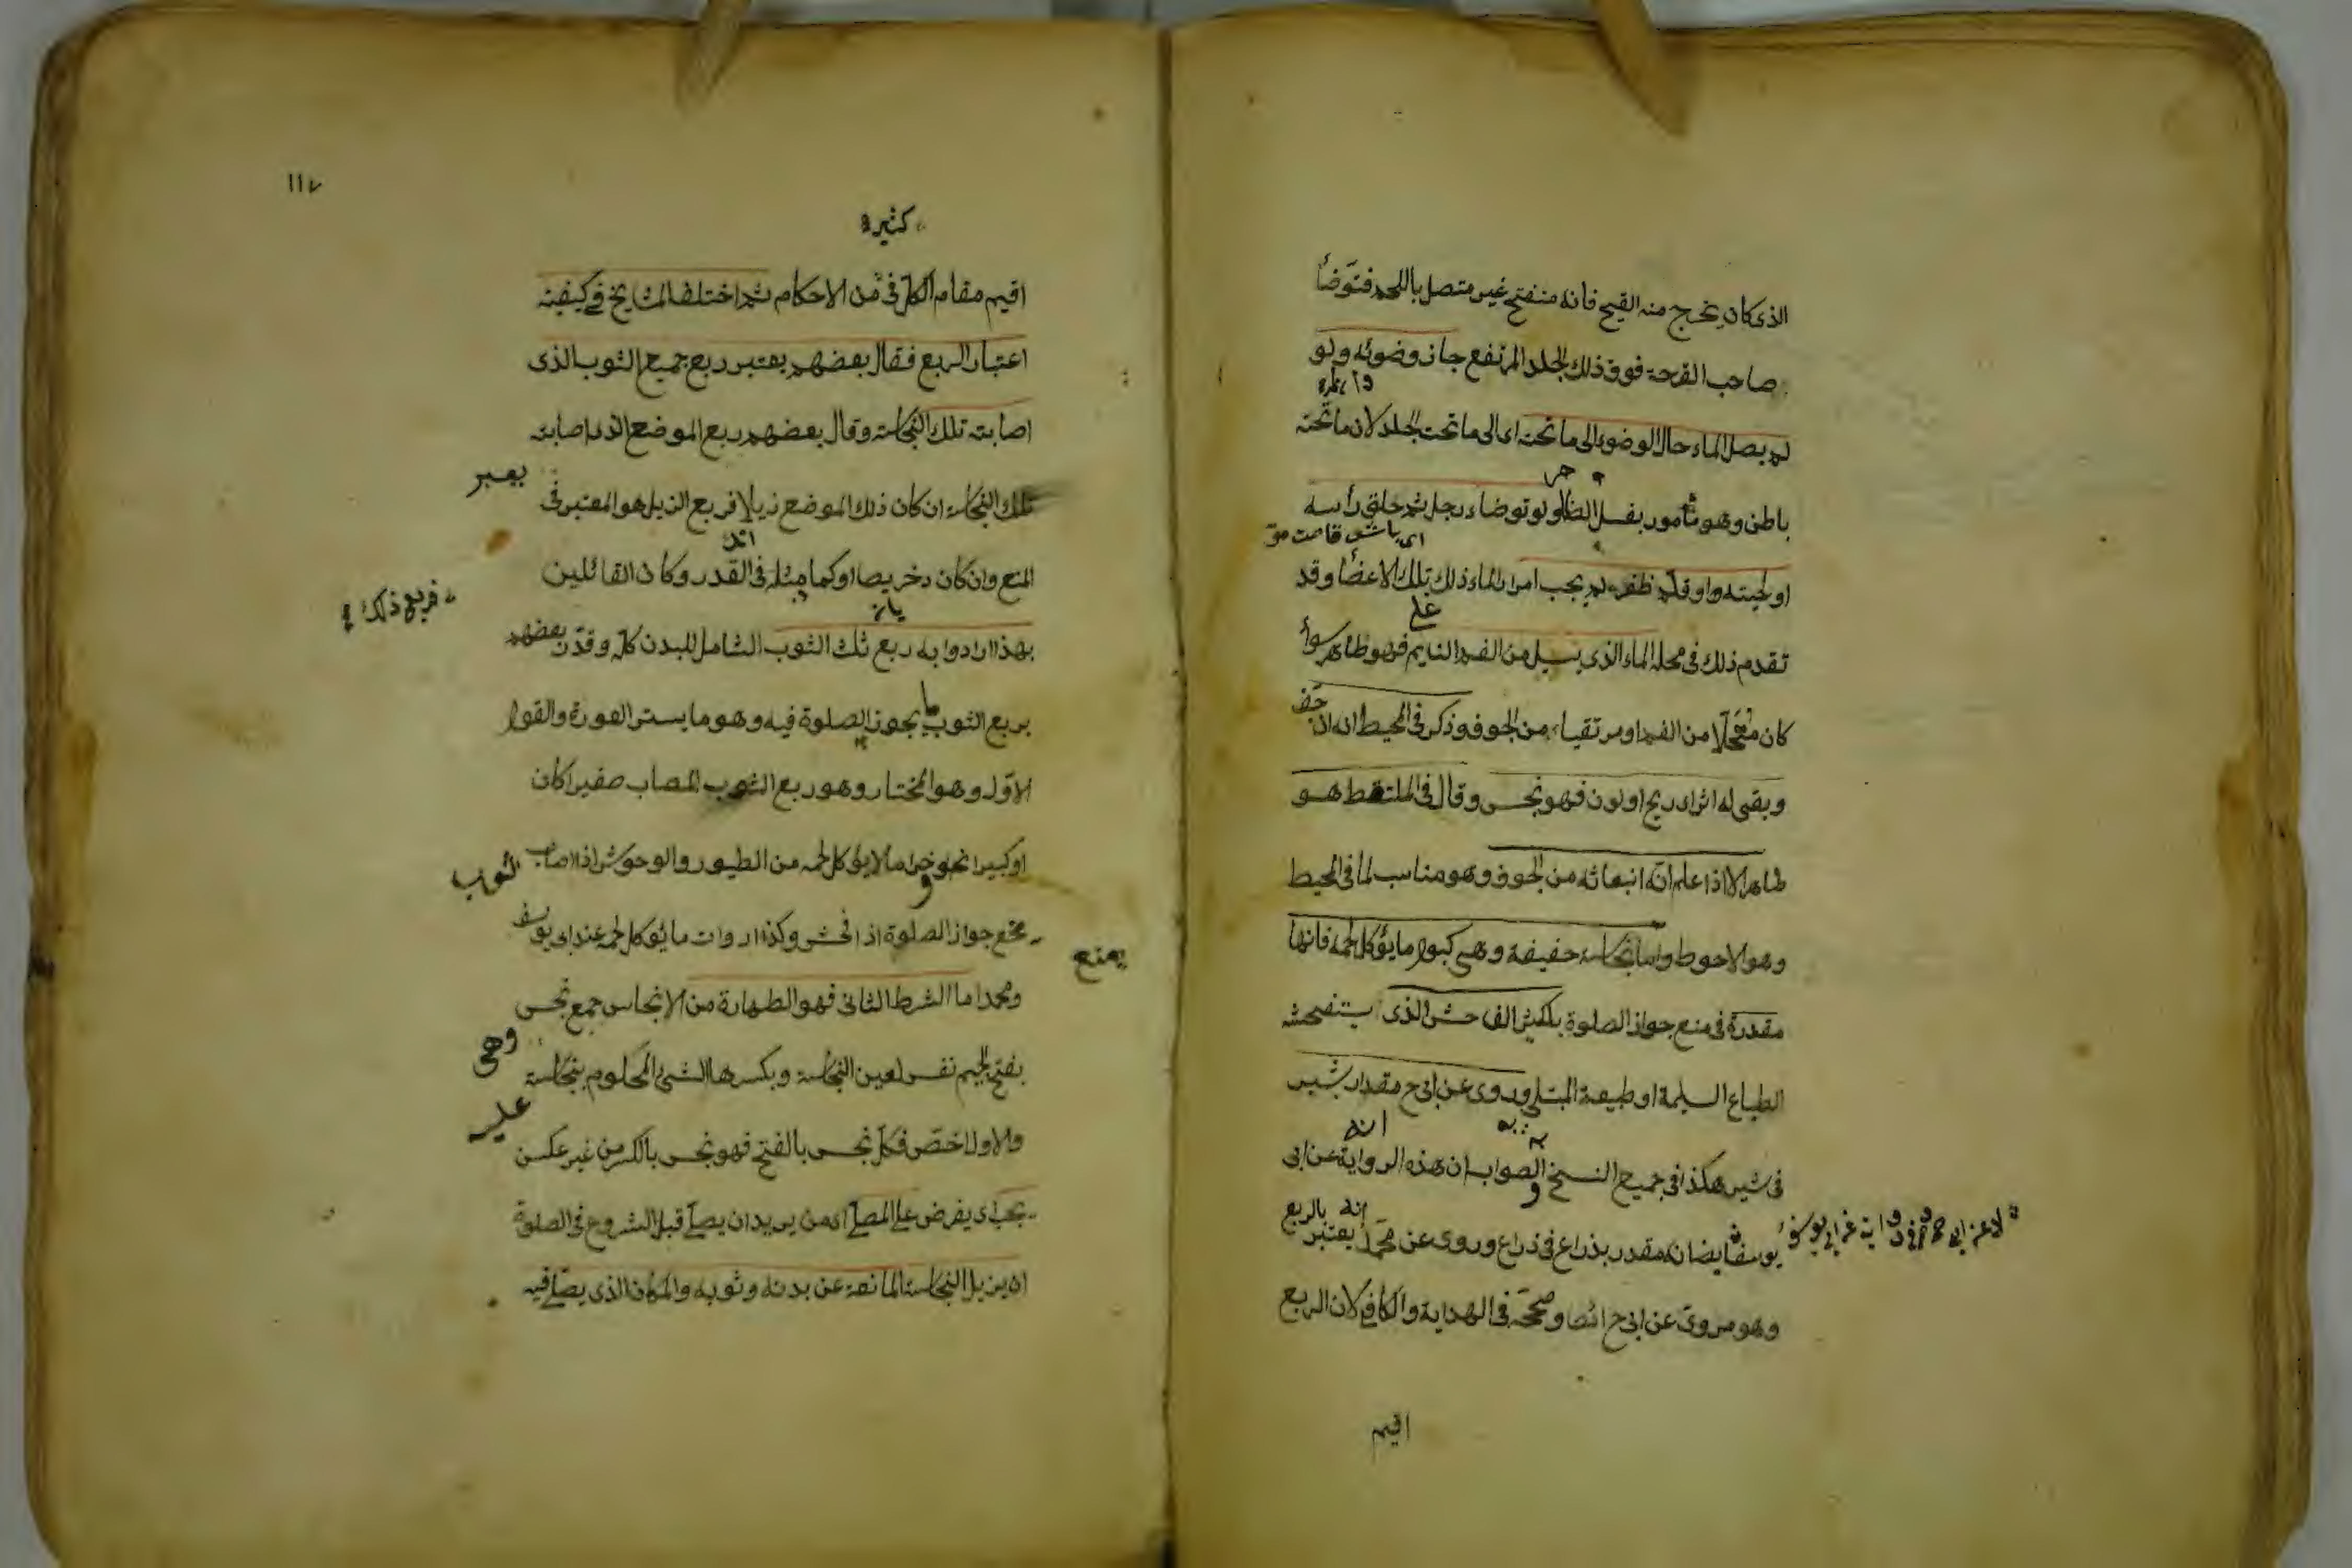 الذى كان يخرج منه القيح فانه منفتح غير متصل باللحم فتوضأ
صاحب القرحة فوق ذلك الجلد المرتفع جاز وضوئه ولو
لم يصل الماء حال الوضوء الى ما تحته اى الى ما تحت الجلد لان ما تحته
باطن وهو مأمور بغسل الظاهر ولو توضاء رجل ثم حلق رأسه
او لحيته او قلم ظفره لم يجب امرار الماء ذلك تلك الاعضا وقد
على
تقدم ذلك فى محله الماء الذى يسيل من الفم النايم فهو طاهر سوأ
كان متحللا من الفم او مرتقيا من الجوف وذكر فى المحيط انه ان جف
وبقى له اثر اى ريح او لون فهو نجس وقال فى الملتقط هو
طاهر الا اذا علم انه انبعاثه من الجوف وهو مناسب لما فى المحيط
وهو الاحوط واما نجاسة خفيفة وهى كبول ما يؤكل لحمه فانها
مقدرة فى منع جواز الصلوة بالكثير الفاحش الذى يستفحشه
الطباع السليمة او طبيعة المبتلى وروى عن ابى ح مقدار شبر
انه
فى شبر هكذا فى جميع النسخ الصواب ان هذه الرواية عن ابى
يوسف ايضا انه مقدر بذراع فى ذراع وروى عن محمد يعتبر
انه بالربع
وهو مروى عن ابى ح ائضا وصححه فى الهداية والكافى لان الربع
اقيم
١١٧
كثيرة
اقيم مقام الكل فى من الاحكام ثم اختلف المشايخ فى كيفية
اعتبار الربع فقال بعضهم يعتبر ربع جميع الثوب الذى
اصابته تلك النجاسة وقال بعضهم ربع الموضع الذى اصابته
تلك النجاسة ان كان ذلك الموضع ذيلا فربع الذيل هو المعتبر فى
المنع وان كان دخريصا او كما مثله فى القدر وكان القائلين
فربع ذلك
بهذا ارادوا به ربع ذلك الثوب الشامل للبدن كله وقدر بعضهم
بربع الثوب ما يجوز الصلوة فيه وهو ما يستر العورة والقول
الاول وهو المختار وهو ربع الثوب المصاب صغيرا كان
او كبيرا نحو خرء ما لا يؤكل لحمه من الطيور والوحوش اذا اصاب
الثوب
يمنع جواز الصلوة اذا فحش وكذا اروات ما يؤكل لحمه عند ابى يوسف
يمنع
ومحمد اما الشرط الثانى فهو الطهارة من الانجاس جمع نجس
وهى
بفتح الجيم نفس لعين النجاسة وبكسرها الشىء المحكوم بنجاسة
عليه
والاول اخص فكل نجس بالفتح فهو نجس بالكسر من غير عكس
يجب اى يفرض على المصلى اى من يريد ان يصلى قبل الشروع فى الصلوة
ان يزيل النجاسة المانعة عن بدنه وثوبه والمكان الذى يصلى فيه